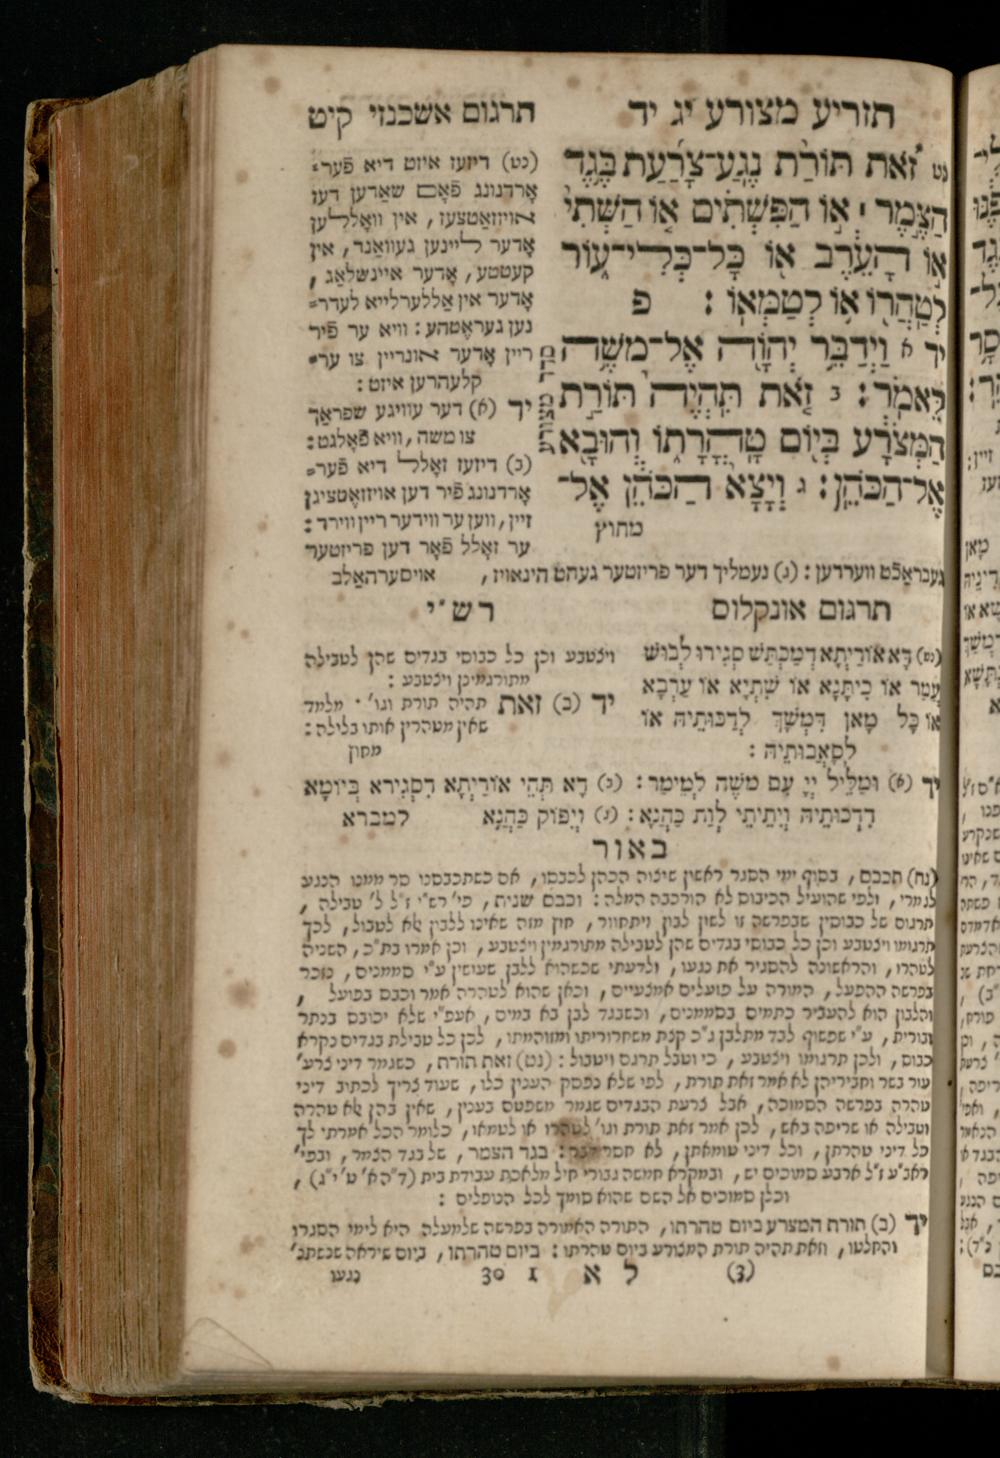 תזריע מצורע יג יד
תרגום אשכנזי קיט
נט זֹאת תּוֹרַת נֶגַע־צָרַעַת בֶּגֶד
הַצֶּמֶר ׀ אוֹ הַפִּשְׁתִּים אוֹ הַשְּׁתִי
אוֹ הָעֵרֶב אוֹ כָּל־כְּלִי־עוֹר
לְטַהֲרוֹ אוֹ לְטַמְּאוֹ : פ
יד א וַיְדַבֵּר יְהוָֹה אֶל־מֹשֶׁה
לֵּאמֹר : ב זֹאת תִּהְיֶה תּוֹרַת
הַמְּצֹרָע בְּיוֹם טָהֳרָתוֹ וְהוּבָא
אֶל־הַכֹּהֵן : ג וְיָצָא הַכֹּהֵן אֶל־
מחוץ
מצורע
(נט) דיזעז איזט דיא פֿער־
אָרדנונג פֿאָם שאַדען דעז
אויזזאַטצעז, אין וואָללען
אָדער ליינען געוואַנד, אין
קעטטע, אָדער איינשלאַג,
אָדער אין אַללערלייא לעדר־
נען געראֶטהע : וויא ער פֿיר
ריין אָדער אונריין צו ער־
קלעהרען איזט :
יד (א) דער עוויגע שפראַך
צו משה, וויא פֿאָלגט :
(ב) דיזעז זאָלל דיא פֿער־
אָרדנונג פֿיר דען אויזזאַטציגן
זיין, ווען ער ווידער ריין ווירד :
ער זאָלל פֿאָר דען פריזטער
געבראַכֿט ווערדען : (ג) נעמליך דער פריזטער געהט הינאויז, אויסערהאַלב
תרגום אונקלוס
(נט) דָּא אוֹרַיְתָא דְמַכְתַּשׁ סְגִירוּ לְבוּשׁ
עֲמַר אוֹ כִיתָּנָא אוֹ שִׁתְיָא אוֹ עַרְבָא
אוֹ כָּל מָאן דִּמְשָׁךְ לְדַכּוּתֵיהּ אוֹ
לְסָאָבוּתֵיהּ :
רש"י
ויצטבע וכן כל כבוסי בגדים שהן לטבילה
מתורגמין ויצטבע :
יד (ב) זאת תהיה תורת וגו' · מלמד
שאין מטהרין אותו בלילה :
מחוץ
יד (א) וּמַלֵּיל יְיָ עִם משֶׁה לְמֵימַר : (ב) דָא תְּהֵי אוֹרַיְתָא דִסְגִירָא בְּיוֹמָא
דִדְכוּתֵיהּ וְיִתֵיתֵי לְוַת כַּהֲנָא : (ג) וְיִפּוֹק כַּהֲנָא למברא
באור
(נח) תכבס, בסוף ימי הסגר ראשון שיצוה הכהן לכבסו, אם כשתכבסנו סר ממנו הנגע
לגמרי, ולפי שהועיל הכיבוס לא הורכבה המלה : וכבס שנית, פי' רש"י ז"ל ל' טבילה,
תרגום של כבוסין שבפרשה זו לשון לבון ויתחוור, חוץ מזה שאינו ללבון אלא לטבול, לכך
תרגומו ויצטבע וכן כל כבוסי בגדים שהן לטבילה מתורגמין ויצטבע, וכן אמרו בת"כ, השניה
לטהרו, והראשונה להסגיר את נגעו, ולדעתי שכשהוא ללבן שעושין ע"י סממנים, נזכר
בפרשה ההפעל, המורה על פועלים אמצעיים, וכאן שהוא לטהרה אמר וכבס בפועל,
והלבון הוא להעביר כתמים בסממנים, וכשבגד לבן בא במים, אעפ"י שלא יכובס בנתר
ובורית, ע"י שפשוף לבד מתלבן ג"כ קצת משחרוריתו ומזוהמתו, לכן כל טבילת בגדים נקרא
כבוס, ולכן תרגומו ויצטבע, כי וטבל תרגם ויטבול : (נט) זאת תורת, כשגמר דיני צרע'
עור בשר וחביריהן לא אמר זאת תורת, לפי שלא נפסק הענין כלו, שעוד צריך לכתוב דיני
טהרה בפרשה הסמוכה, אבל צרעת הבגדים שגמר משפטם בענין, שאין בהן אלא טהרה
וטבילה או שריפה באש, לכן אמר זאת תורת וגו' לטהרו או לטמאו, כלומר הכל אמרתי לך
כל דיני טהרתן, וכל דיני טומאתן, לא חסר דבר : בגד הצמר, של בגד הצמר, ובפי'
ראב"ע ז"ל ארבע סמוכים יש, ובמקרא חמשה גבורי חיל מלאכת עבודת בית (ד"הא' ט' י"ג),
וכלן סמוכים אל השם שהוא סומך לכל הנופלים :
יד (ב) תורת המצרע ביום טהרתו, התורה האמורה בפרשה שלמעלה היא לימי הסגרו
והחלטו, וזאת תהיה תורת המצורע ביום טהרתו : ביום טהרתו, ביום שיראה שנשתנ'
(3) לא 1 30 נגעו